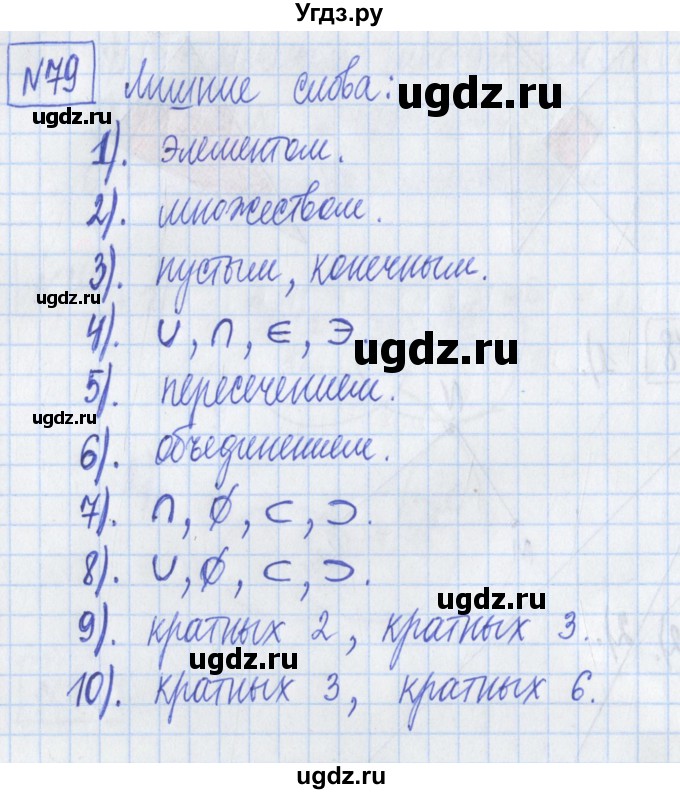 Угдз.ру
№79 Лишние слова:
ugdz.ru
ugdz.ru
1). элементом.
ugdz.ru
2). множеством.
3). пустым, конечным.
ugdz.ru
4). ∪, ∩, ∈, ∋.
ugdz.ru
5). пересечением.
ugdz.ru
6). объединением.
7). ∩, ∅, ⊂, ⊃.
8). ∪, ∅, ⊂, ⊃.
ugdz.ru
9). кратных 2, кратных 3.
ugdz.ru
10). кратных 3, кратных 6.
ugdz.ru